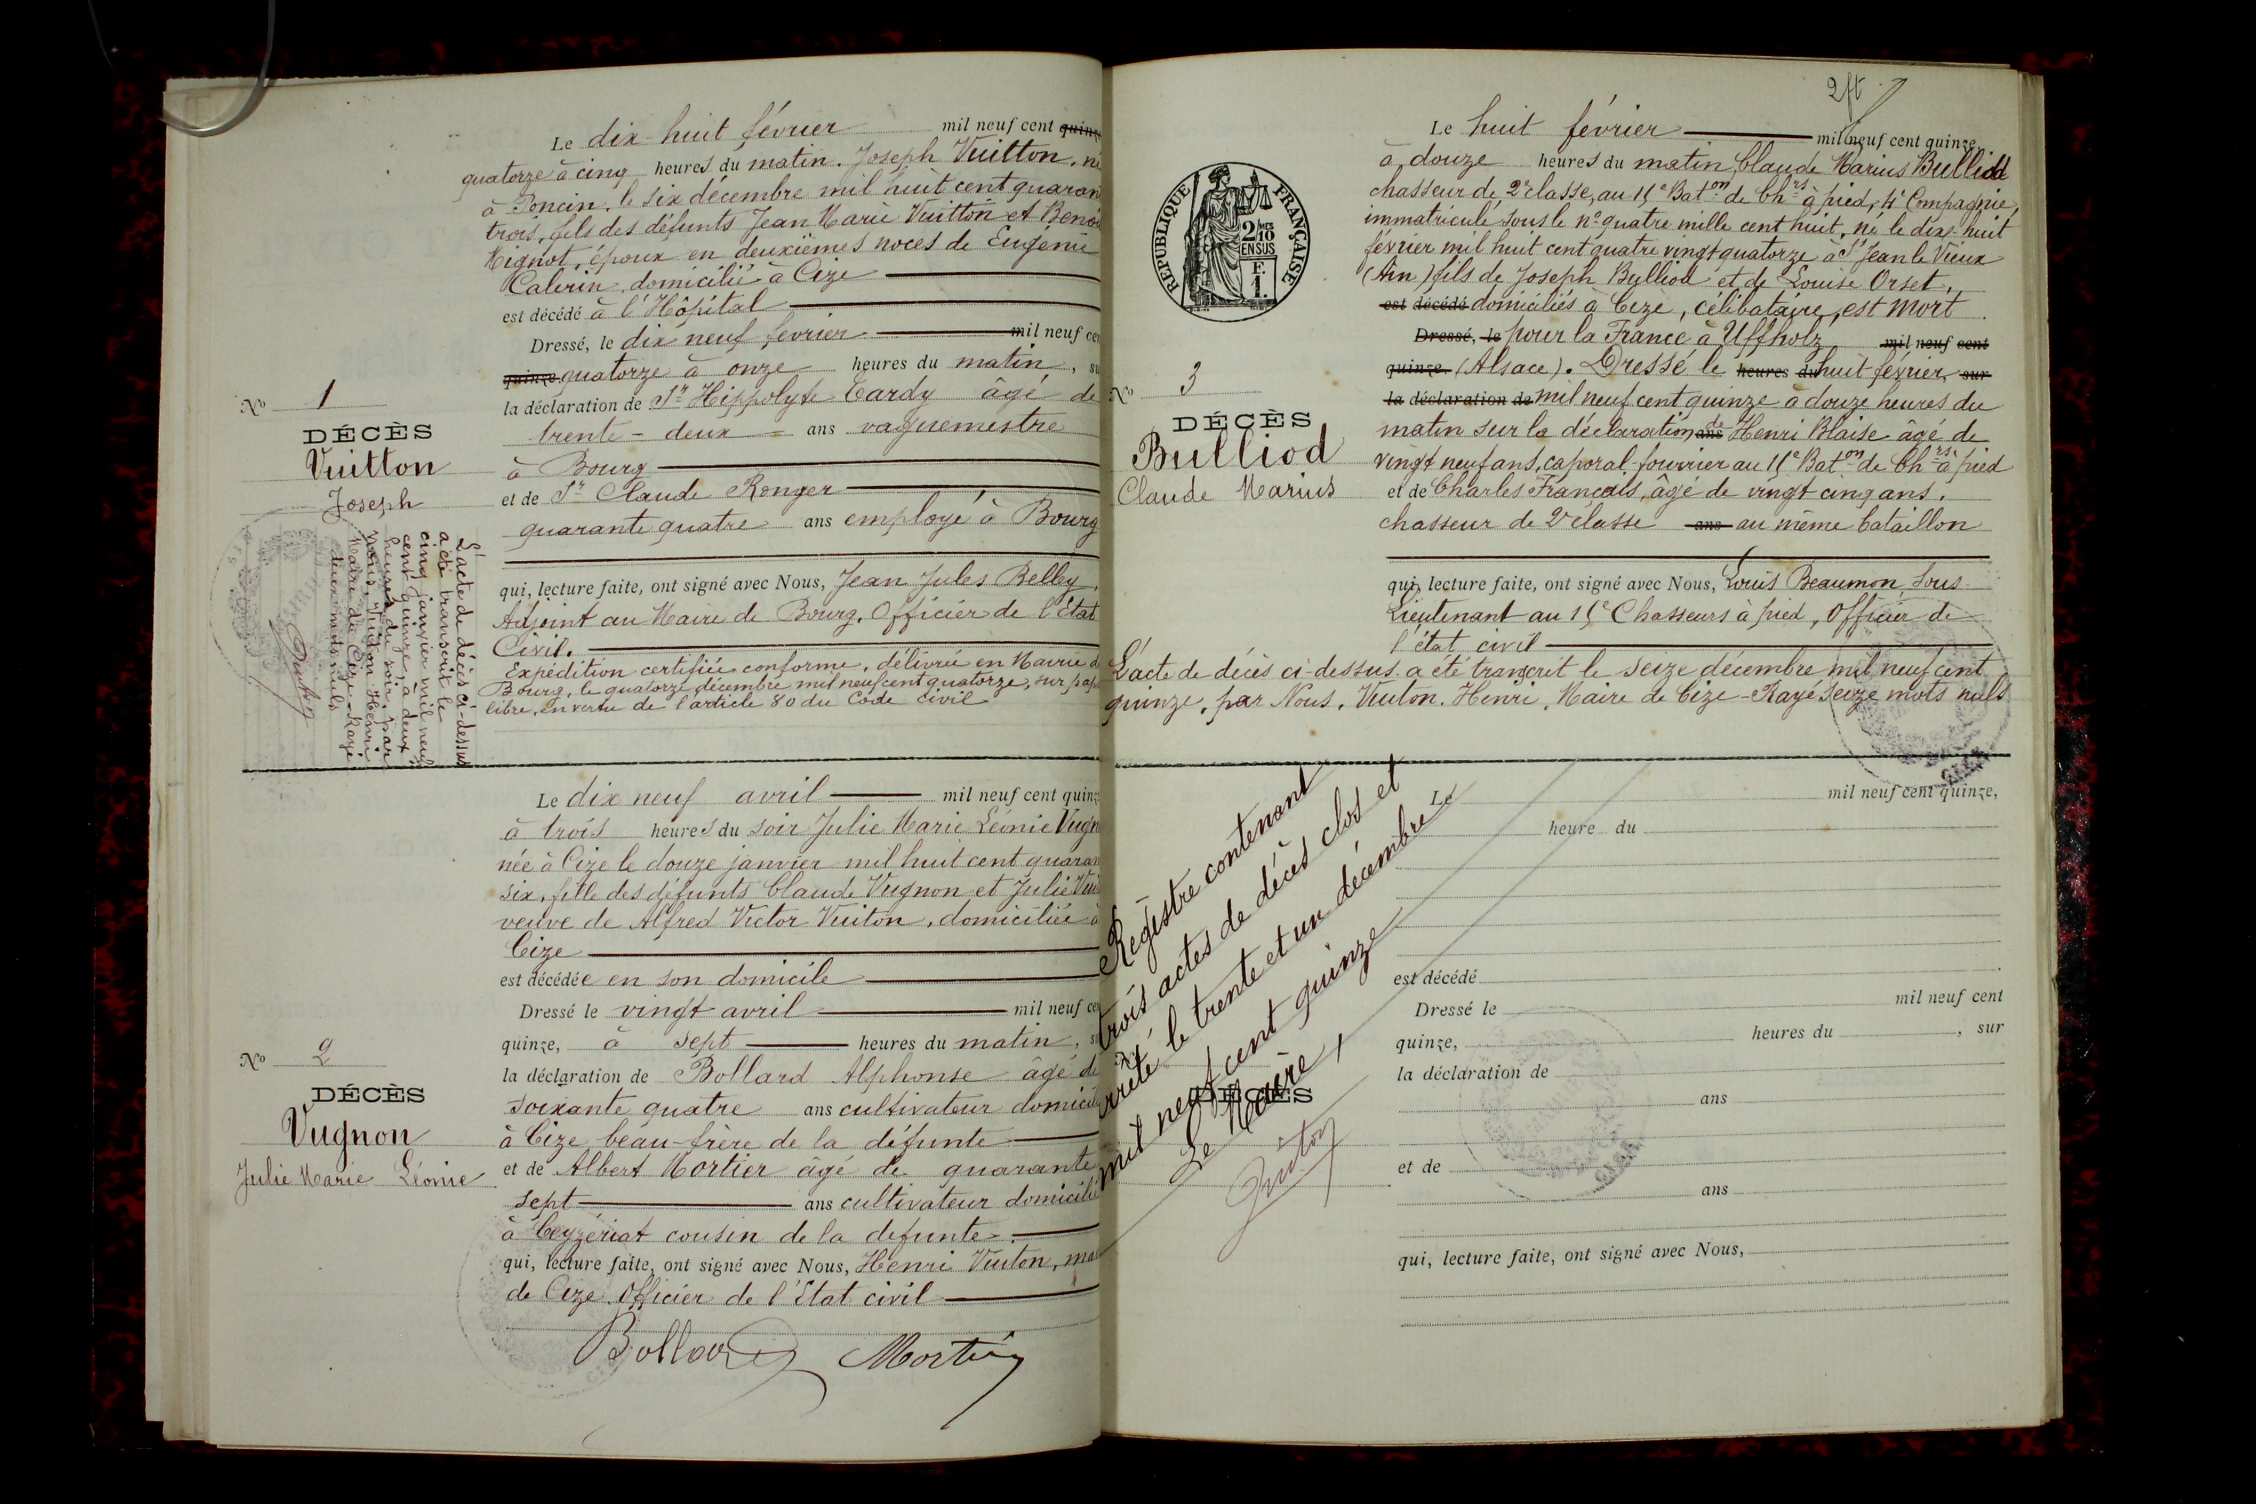 Le dix-huit février mil neuf cent quinze
quatorze à cinq heures du matin. Joseph Vuitton, né
à Poncin, le six décembre mil huit cent quaran
trois, fils des défunts Jean Marie Vuitton et Benoi
Mignot, époux en deuxièmes noces de Eugénie
Calerin, domicilié à Cize
est décédé à l'Hôpital
Dressé, le dix neuf février mil neuf cen
quinze. quatorze à onze heures du matin, su
la déclaration de Sr Hippolyte Tardy âgé de
trente-deux ans vaguemestre
à Bourg
et de Sr Claude Ronger
quarante quatre ans employé à Bourg
qui, lecture faite, ont signé avec Nous, Jean Jules Belley,
Adjoint au Maire de Bourg, Officier de l'État
Civil.
Expédition certifiée conforme, délivrée en Mairie d
Bourg, le quatorze décembre mil neuf cent quatorze, sur pap
libre, en vertu de l'article 80 du Code civil
No 1
DÉCÈS
Vuitton
Joseph
L'acte de décès ci-dessus
a été transcrit le
cinq janvier mil neuf
cent quinze, à deux
heures du soir, par
Nous, Vuiton Henri
Maire de Cize - Rayé
deux mots nuls
Vuiton
Le dix neuf avril mil neuf cent quinz
à trois heures du soir Julie Marie Léonie Vugn
née à Cize le douze janvier mil huit cent quaran
six, fille des défunts Claude Vugnon et Julie Vui
veuve de Alfred Victor Vuiton, domiciliée à
Cize
est décédée en son domicile
Dressé le vingt avril mil neuf cen
quinze, à sept heures du matin, s
la déclaration de Bollard Alphonse âgé de
soixante quatre ans cultivateur domicili
à Cize beau-frère de la défunte
et de Albert Mortier âgé de quarante
sept ans cultivateur domicilié
à Ceyzériat cousin de la défunte.
qui, lecture faite, ont signé avec Nous, Henri Vuiton, mai
de Cize Officier de l'État civil
Bollard Mortier
No 2
DÉCÈS
Vugnon
Julie Marie Léonie
2 ft
REPUBLIQUE FRANÇAISE
2 MES
10
EN SUS
F.
1.
Le huit février mil neuf cent quinze,
à douze heures du matin, Claude Marius Bulliod
chasseur de 2e classe, au 15e Baton de Chrs à pied, 4e Compagnie,
immatriculé sous le no quatre mille cent huit, né le dix-huit
février mil huit cent quatre vingt quatorze à St Jean le Vieux
(Ain) fils de Joseph Bulliod et de Louise Orset,
est décédé domiciliés à Cize, célibataire, est mort
Dressé, le pour la France à Uffholz mil neuf cent
quinze. (Alsace). Dressé le heures du huit février, sur
la déclaration de mil neuf cent quinze à douze heures du
matin sur la déclaration ans de Henri Blaise âgé de
vingt neuf ans, caporal-fourrier au 15e Baton de Chrs à pied
et de Charles Français, âgé de vingt cinq ans,
chasseur de 2e classe ans au même bataillon
qui, lecture faite, ont signé avec Nous, Louis Beaumon, Sous-
Lieutenant au 15e Chasseurs à pied, Officier de
l'état civil
L'acte de décès ci-dessus a été transcrit le seize décembre mil neuf cent
quinze, par Nous, Vuiton, Henri, Maire de Cize - Rayé seize mots nuls
No 3
DÉCÈS
Bulliod
Claude Marius
Registre contenant
trois actes de décès clos et
arrêté le trente et un décembre
mil neuf cent quinze
Le Maire,
Vuiton
No
DÉCÈS
Le mil neuf cent quinze,
heure du
est décédé
Dressé le mil neuf cent
quinze, heures du , sur
la déclaration de
ans
et de
ans
qui, lecture faite, ont signé avec Nous,